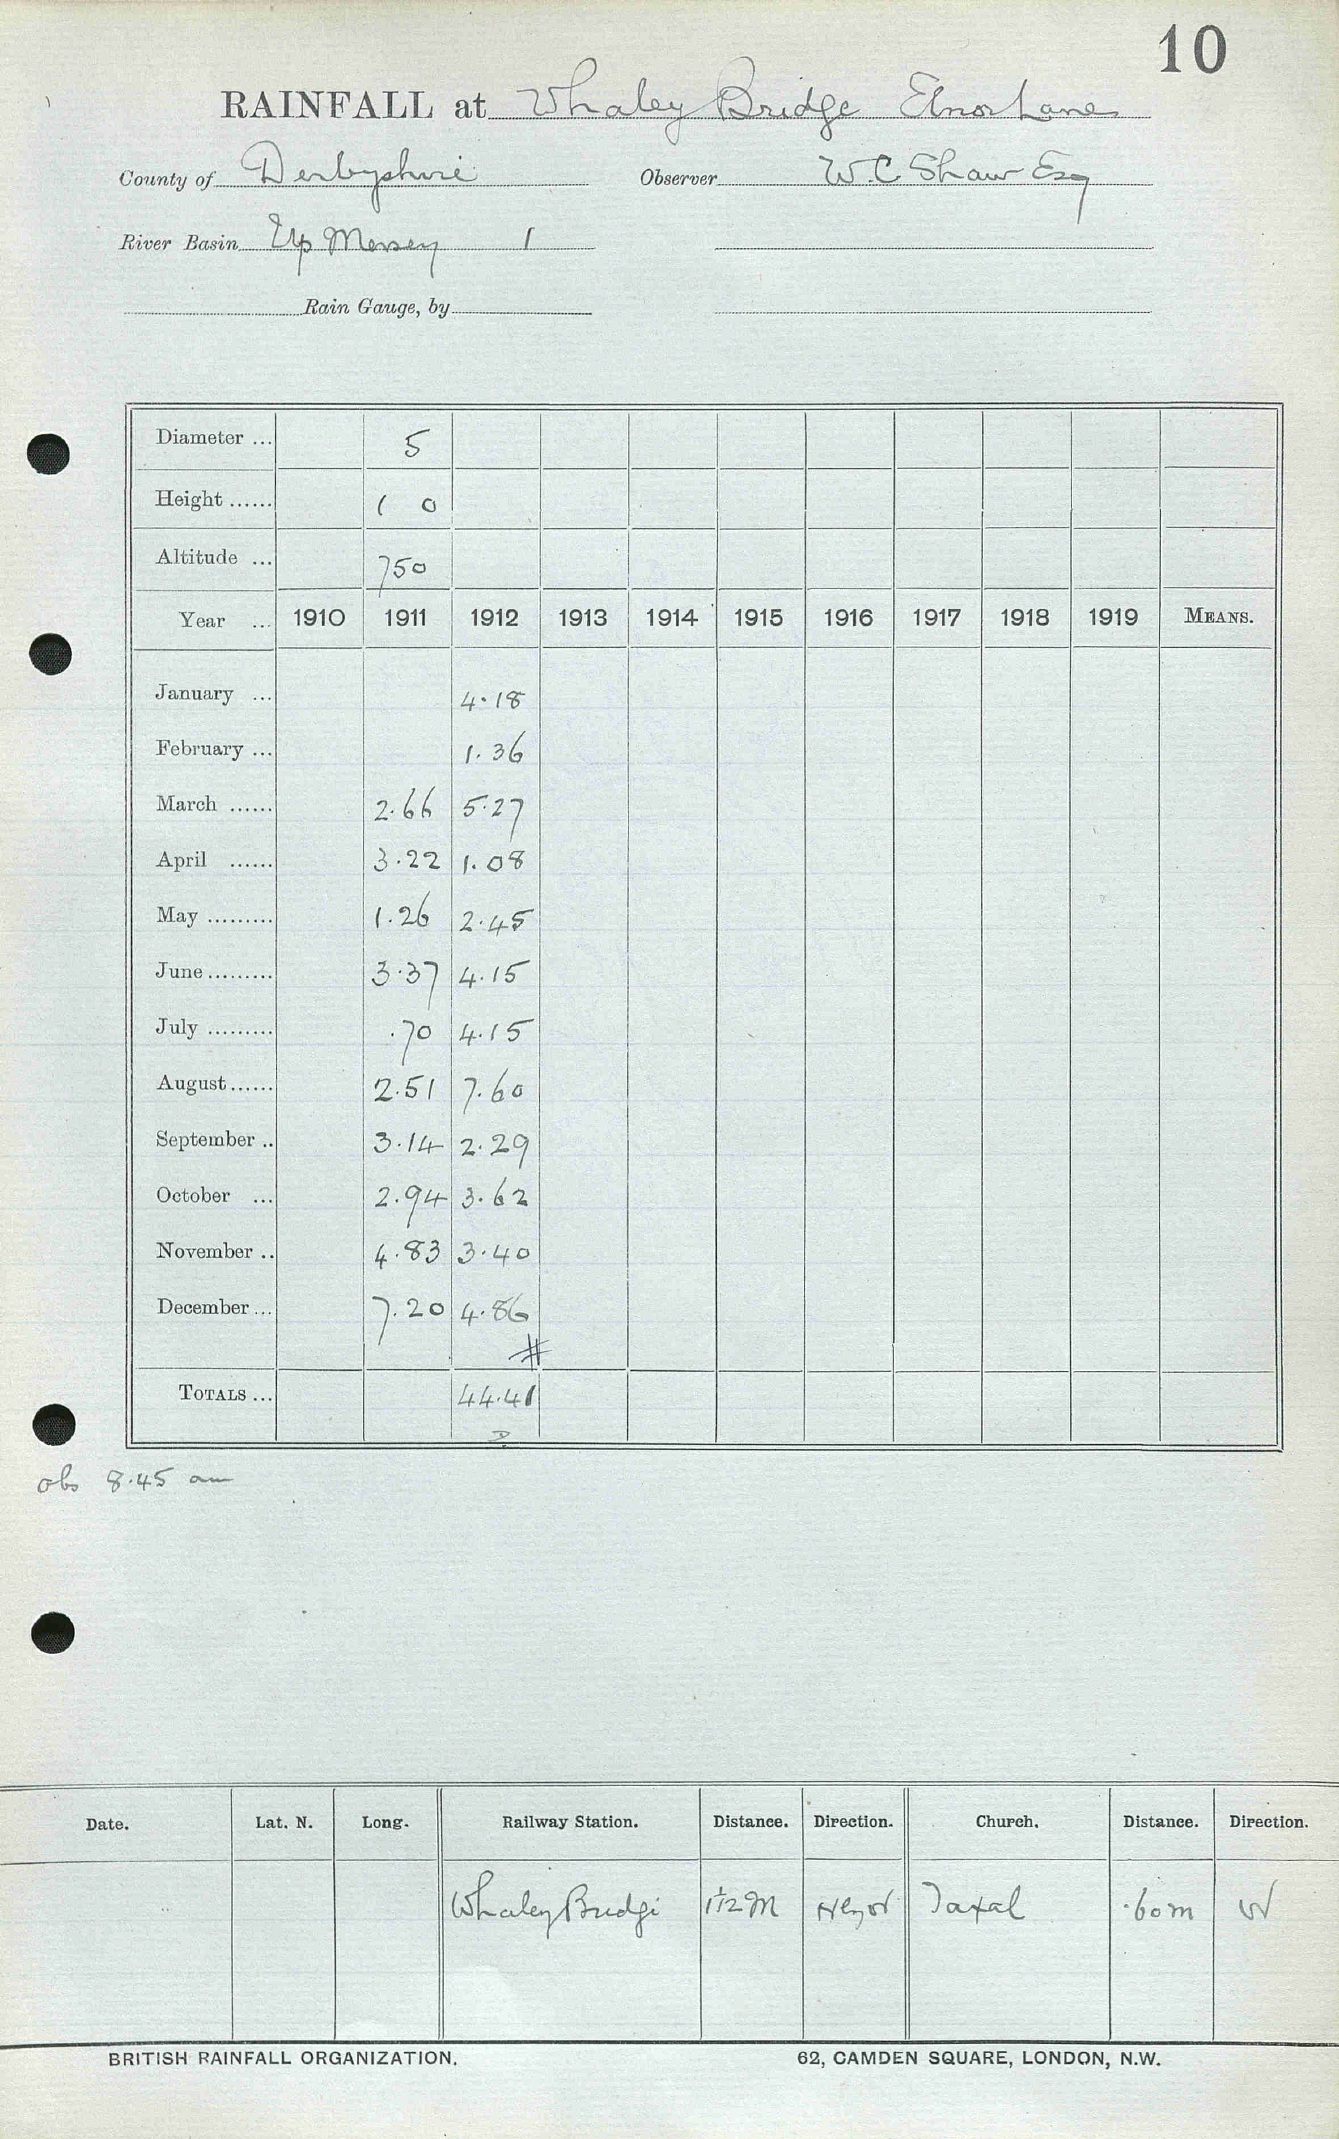 10
RAINFALL at Whaley Bridge Elnor Lane
County of Derbyshire Observer W. C Shaw Esq
River Basin Up Mersey 1
Rain Gauge, by
Diameter ... 5
Height ...... 1 0
Altitude ... 750
Year ... 1910 1911 1912 1913 1914 1915 1916 1917 1918 1919 MEANS.
January ... 4.18
February ... 1.36
March ...... 2.66 5.27
April ...... 3.22 1.08
May ......... 1.26 2.45
June ......... 3.37 4.15
July ......... .70 4.15
August ...... 2.51 7.60
September .. 3.14 2.29
October ... 2.94 3.62
November .. 4.83 3.40
December ... 7.20 4.86
#
TOTALS ... 44.41
D
obs 8.45 am
Date. Lat. N. Long. Railway Station. Distance. Direction. Church. Distance. Direction.
Whaley Bridge 1 1/2 M N by W Taxal .60 m W
BRITISH RAINFALL ORGANIZATION. 62, CAMDEN SQUARE, LONDON, N.W.